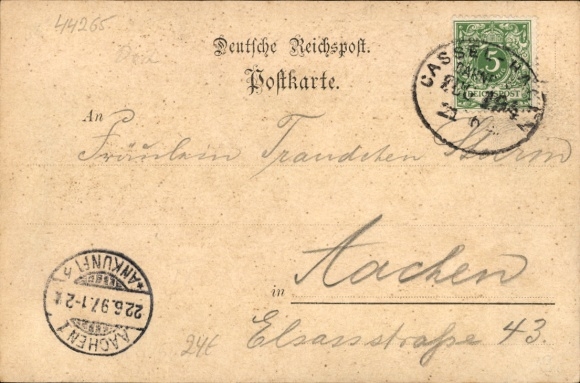 44265
Deutsche Reichspost.
Postkarte.
5
REICHSPOST
CASSEL
BAHNPOST
ZUG 184
21 6
An Fräulein Traudchen
in Aachen
Elsassstraße 43.
AACHEN 1
22.6.97.1-2N
*ANKUNFT*
24E